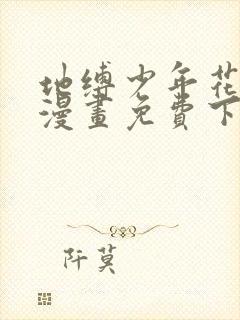 地缚少年花
漫畫免費下
阡莫